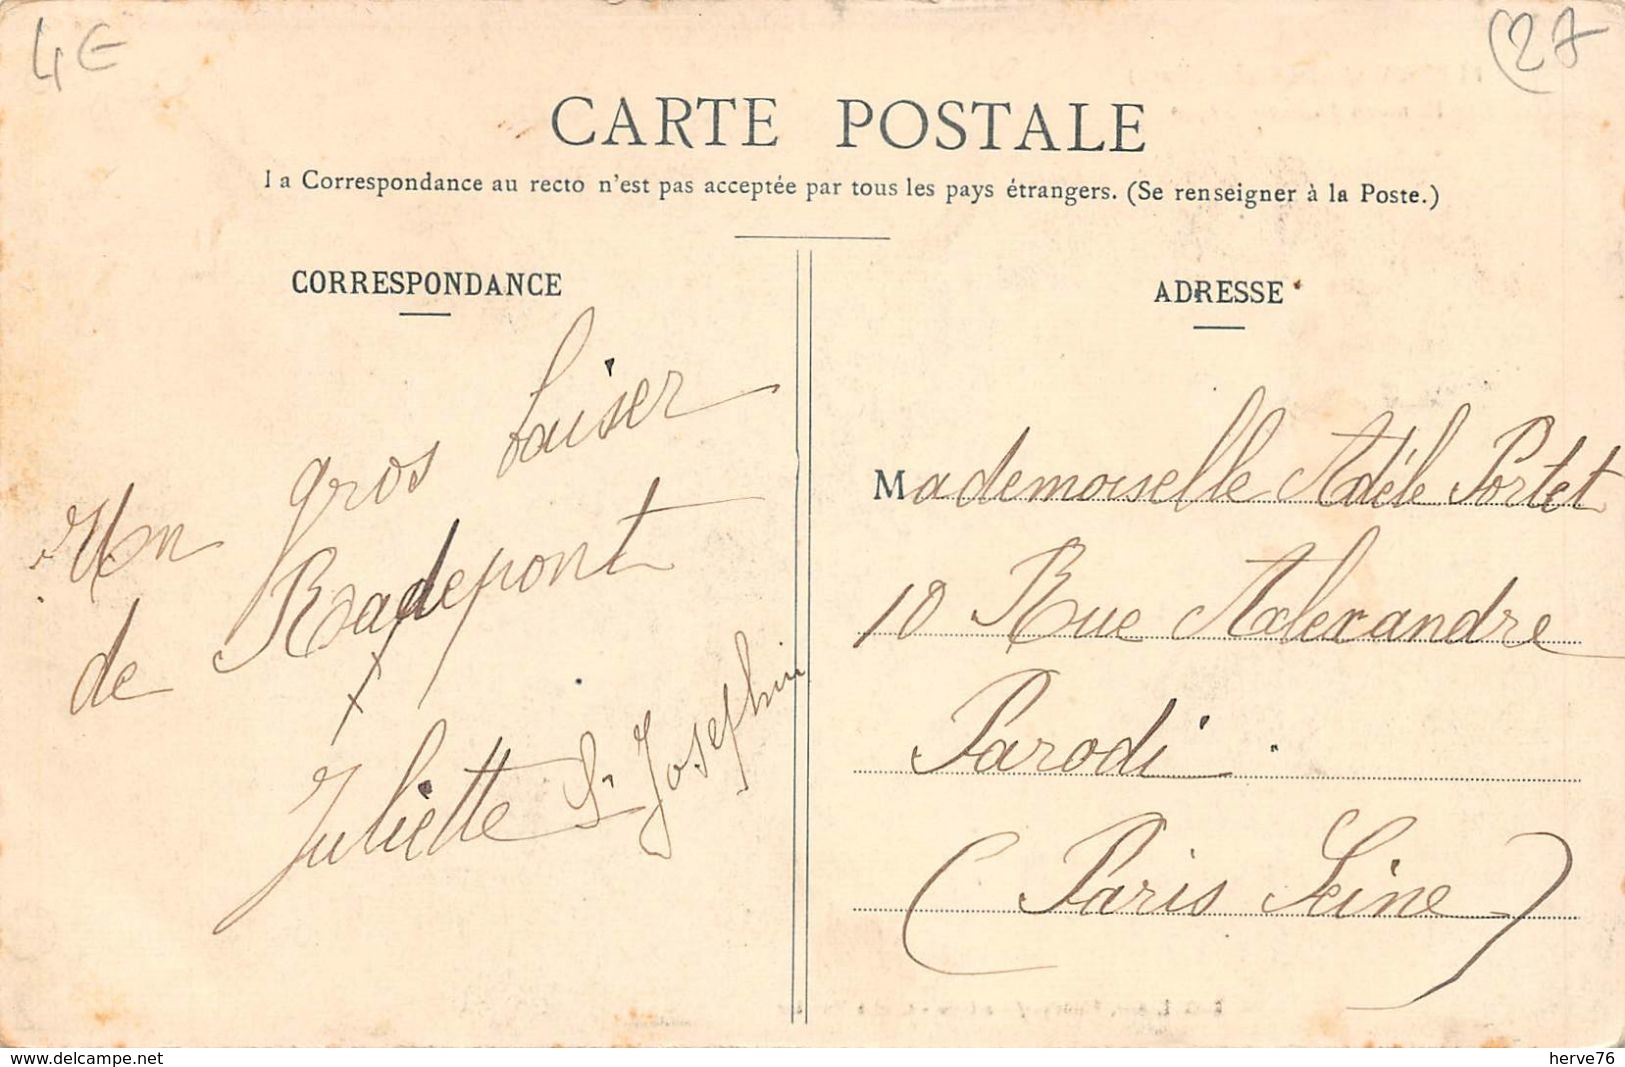 4€
(27
CARTE POSTALE
La Correspondance au recto n'est pas acceptée par tous les pays étrangers. (Se renseigner à la Poste.)
CORRESPONDANCE
Un gros baiser
de Radepont
Juliette St Josephin
ADRESSE
Mademoiselle Adèle Portet
10 Rue Alexandre
Parodi.
(Paris Seine)
www.delcampe.net
herve76